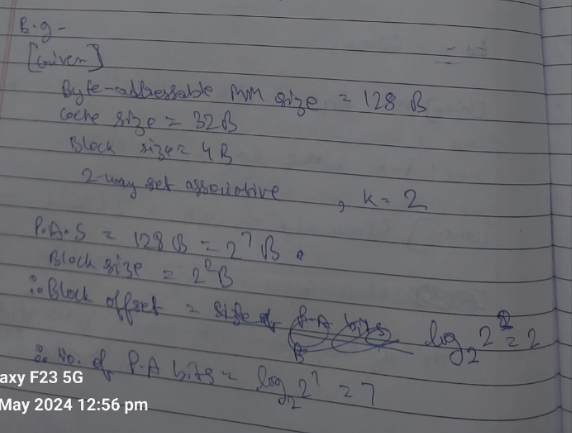 B.g-
[Given]
Byte-addressable MM size = 128 B
Cache size = 32B
Block size = 4B
2-way set associative , k = 2
P.A.S = 128 B = 2^7 B.
Block size = 2^2 B
∴ Block offset = size of P.A bits log_2 2^2 = 2
∴ No. of P.A bits = log_2 2^7 = 7
axy F23 5G
May 2024 12:56 pm